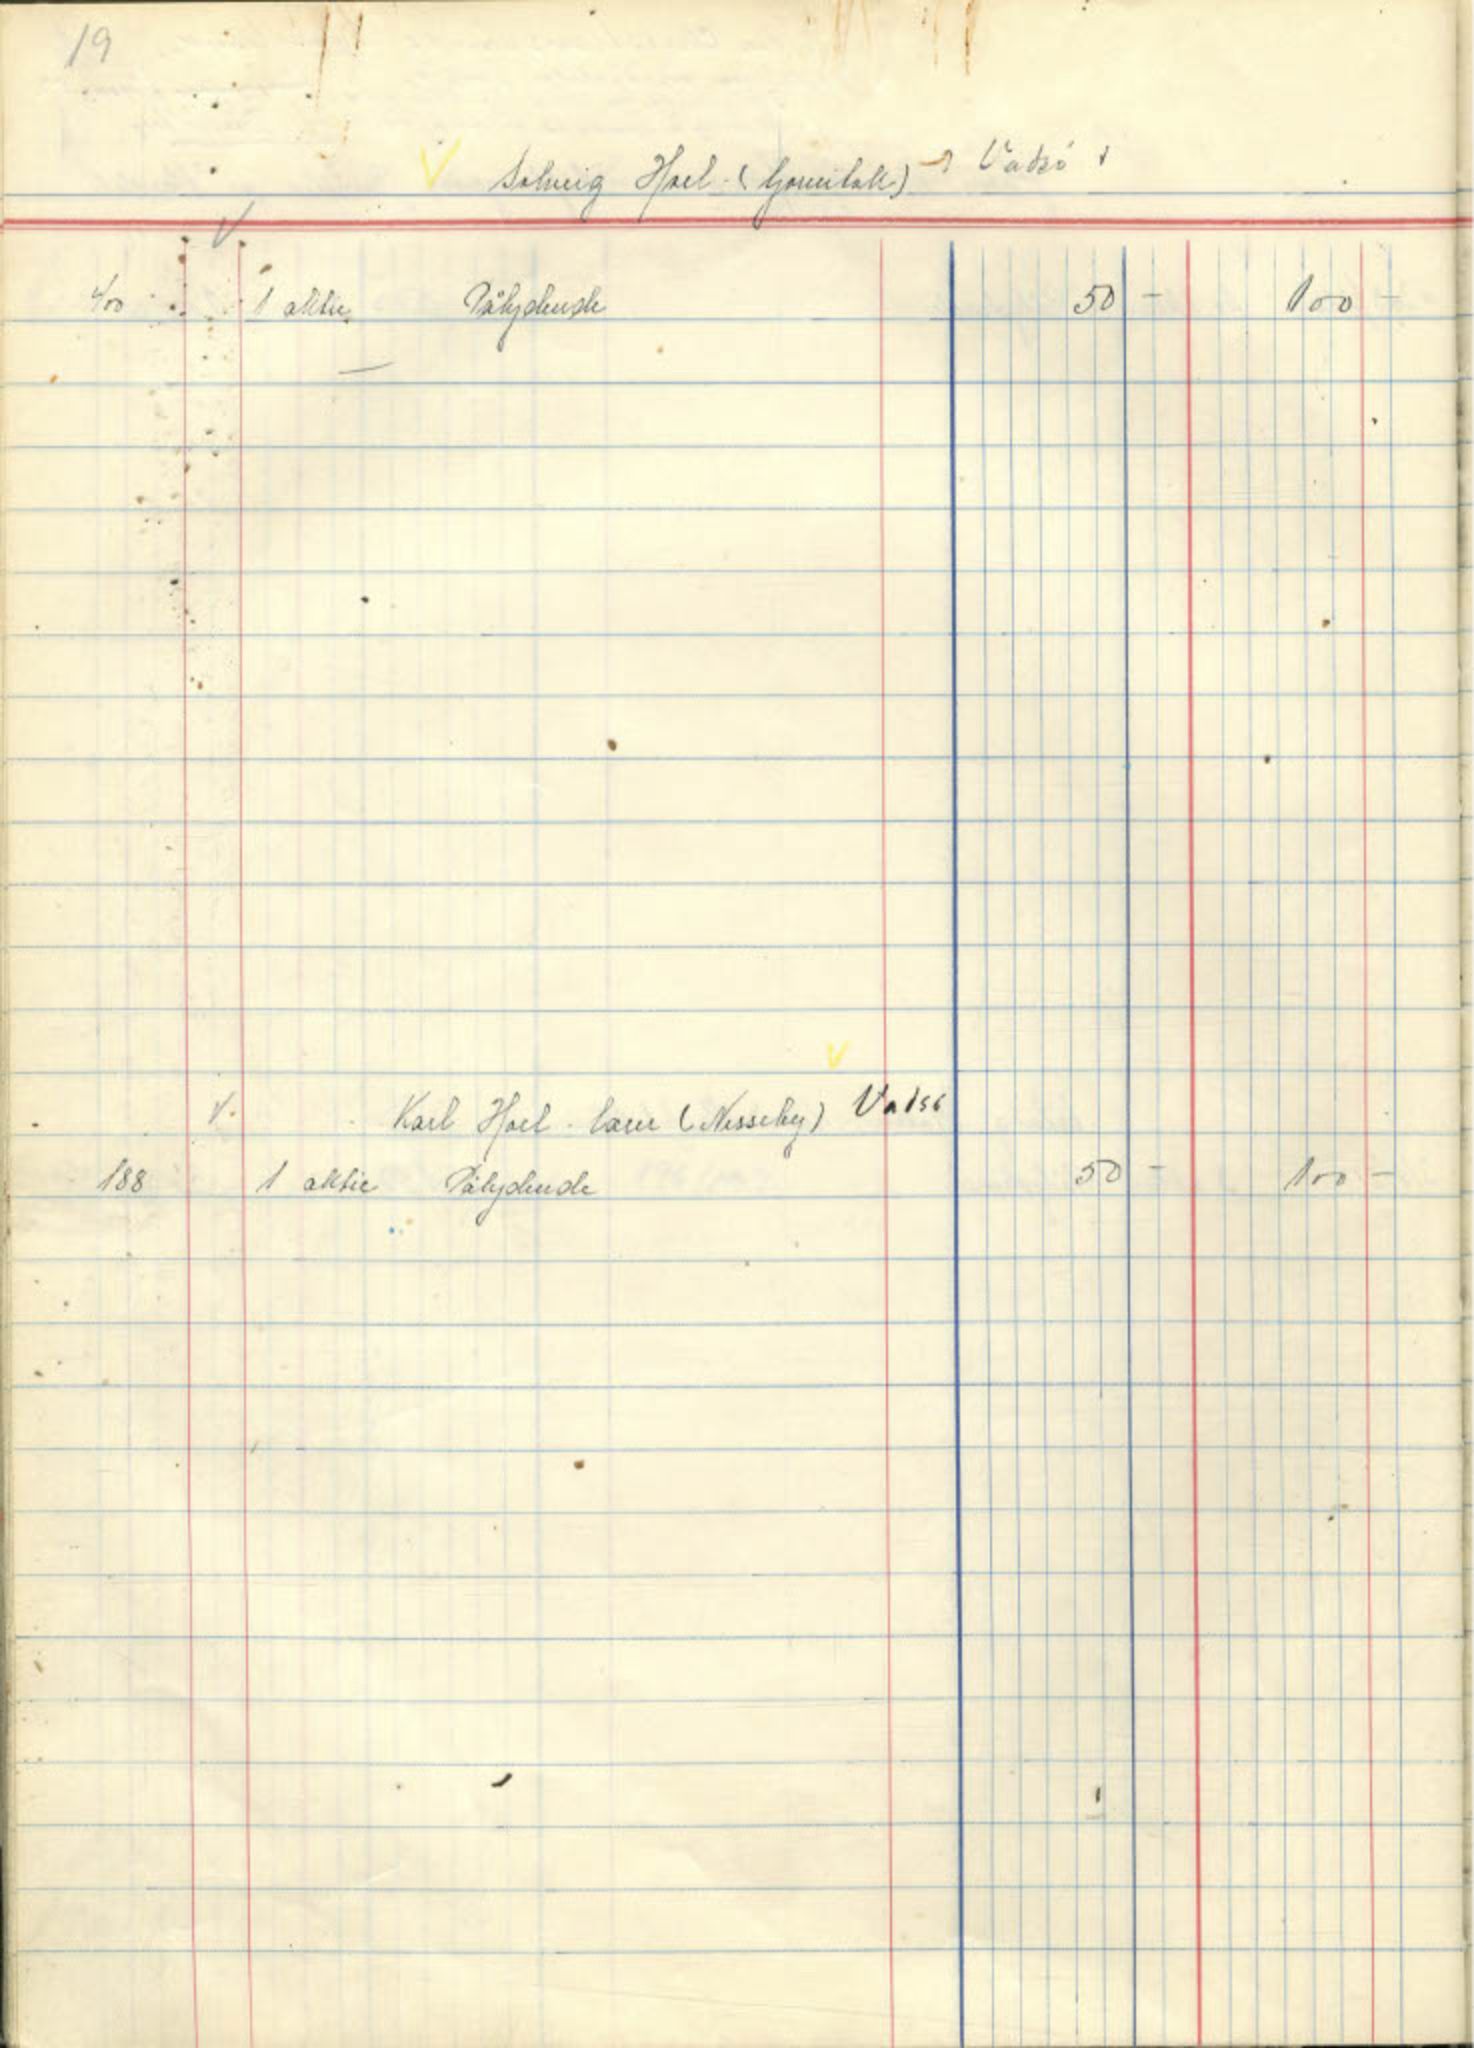 19
Solveig Hoel (Gornitak) Vadsö
400 1 aktie Pålydende 50 - 100 -
Karl Hoel (Nesseby) Vadsö
188 1 aktie Pålydende 50 - 100 -